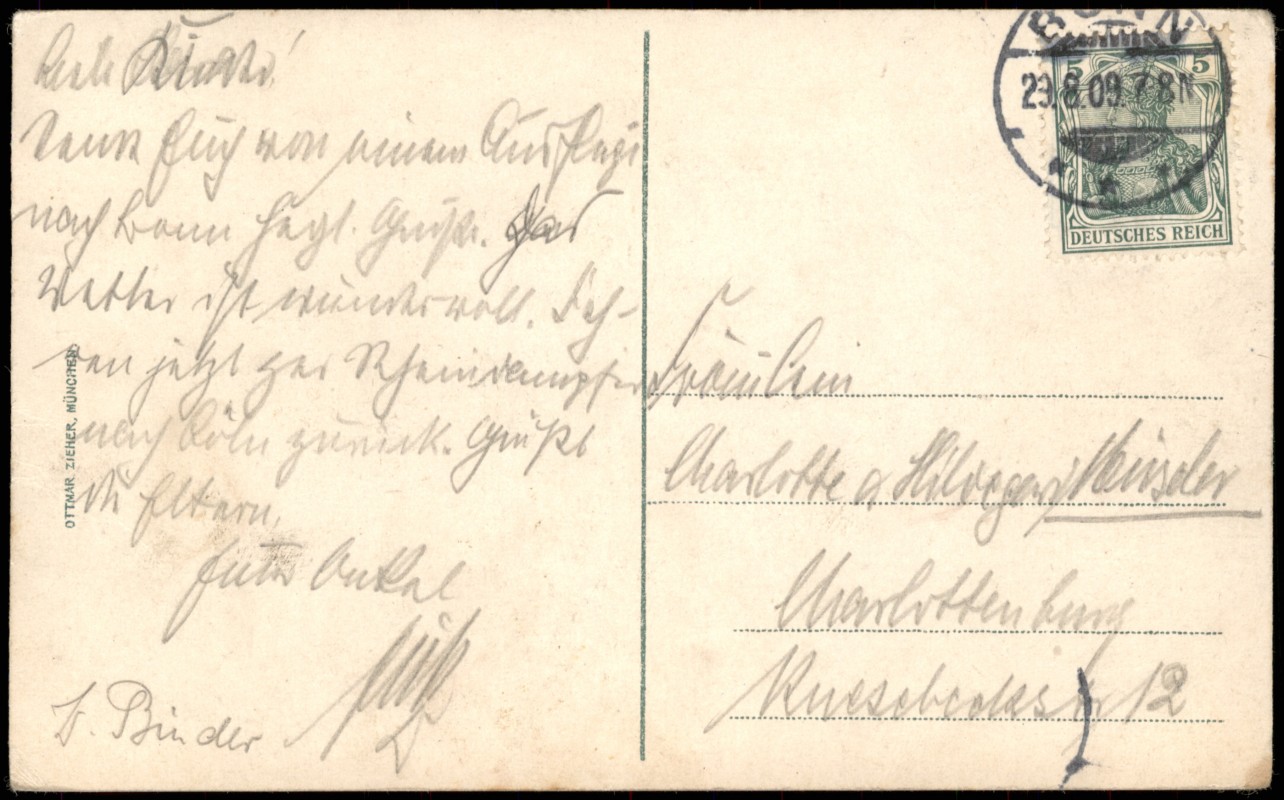 Liebe Kinder!
sende Euch von einem Ausfluge
nach Bonn herzl. Grüße. Das
Wetter ist wundervoll. Fah-
ren jetzt per Rheindampfer
nach Cöln zurück. Grüßt
die Eltern.
Euer Onkel
F. Binder
OTTMAR ZIEHER, MÜNCHEN.
BONN
29.8.09. 7-8N
5 5
DEUTSCHES REICH
Fräulein
Charlotte u Hildegard
Charlottenburg
Knesebeckstr 12